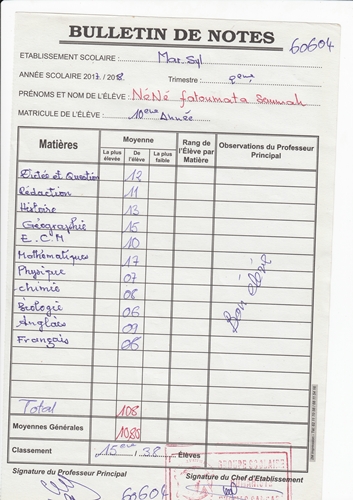 BULLETIN DE NOTES
60604
ETABLISSEMENT SCOLAIRE : Mar. Syl
ANNÉE SCOLAIRE 2017 / 2018 Trimestre : 2ème
PRÉNOMS ET NOM DE L'ÉLÈVE : NéNé fatoumata Soumah
MATRICULE DE L'ÉLÈVE : 10ème Année
Matières Moyenne Rang de l'Élève par Matière Observations du Professeur Principal
La plus élevée De l'élève La plus faible
Dictés et Question 12
Rédaction 11
Histoire 13
Géographie 15
E.C.M 10
Mathématiques 17
Physique 07
chimie 08
Biologie 06
Anglais 09
Français
Bon élève
Total 108
Moyennes Générales 10,85
Classement 15ème / 38 Élèves
GROUPE SCOLAIRE
Signature du Professeur Principal Signature du Chef d'Établissement
60604